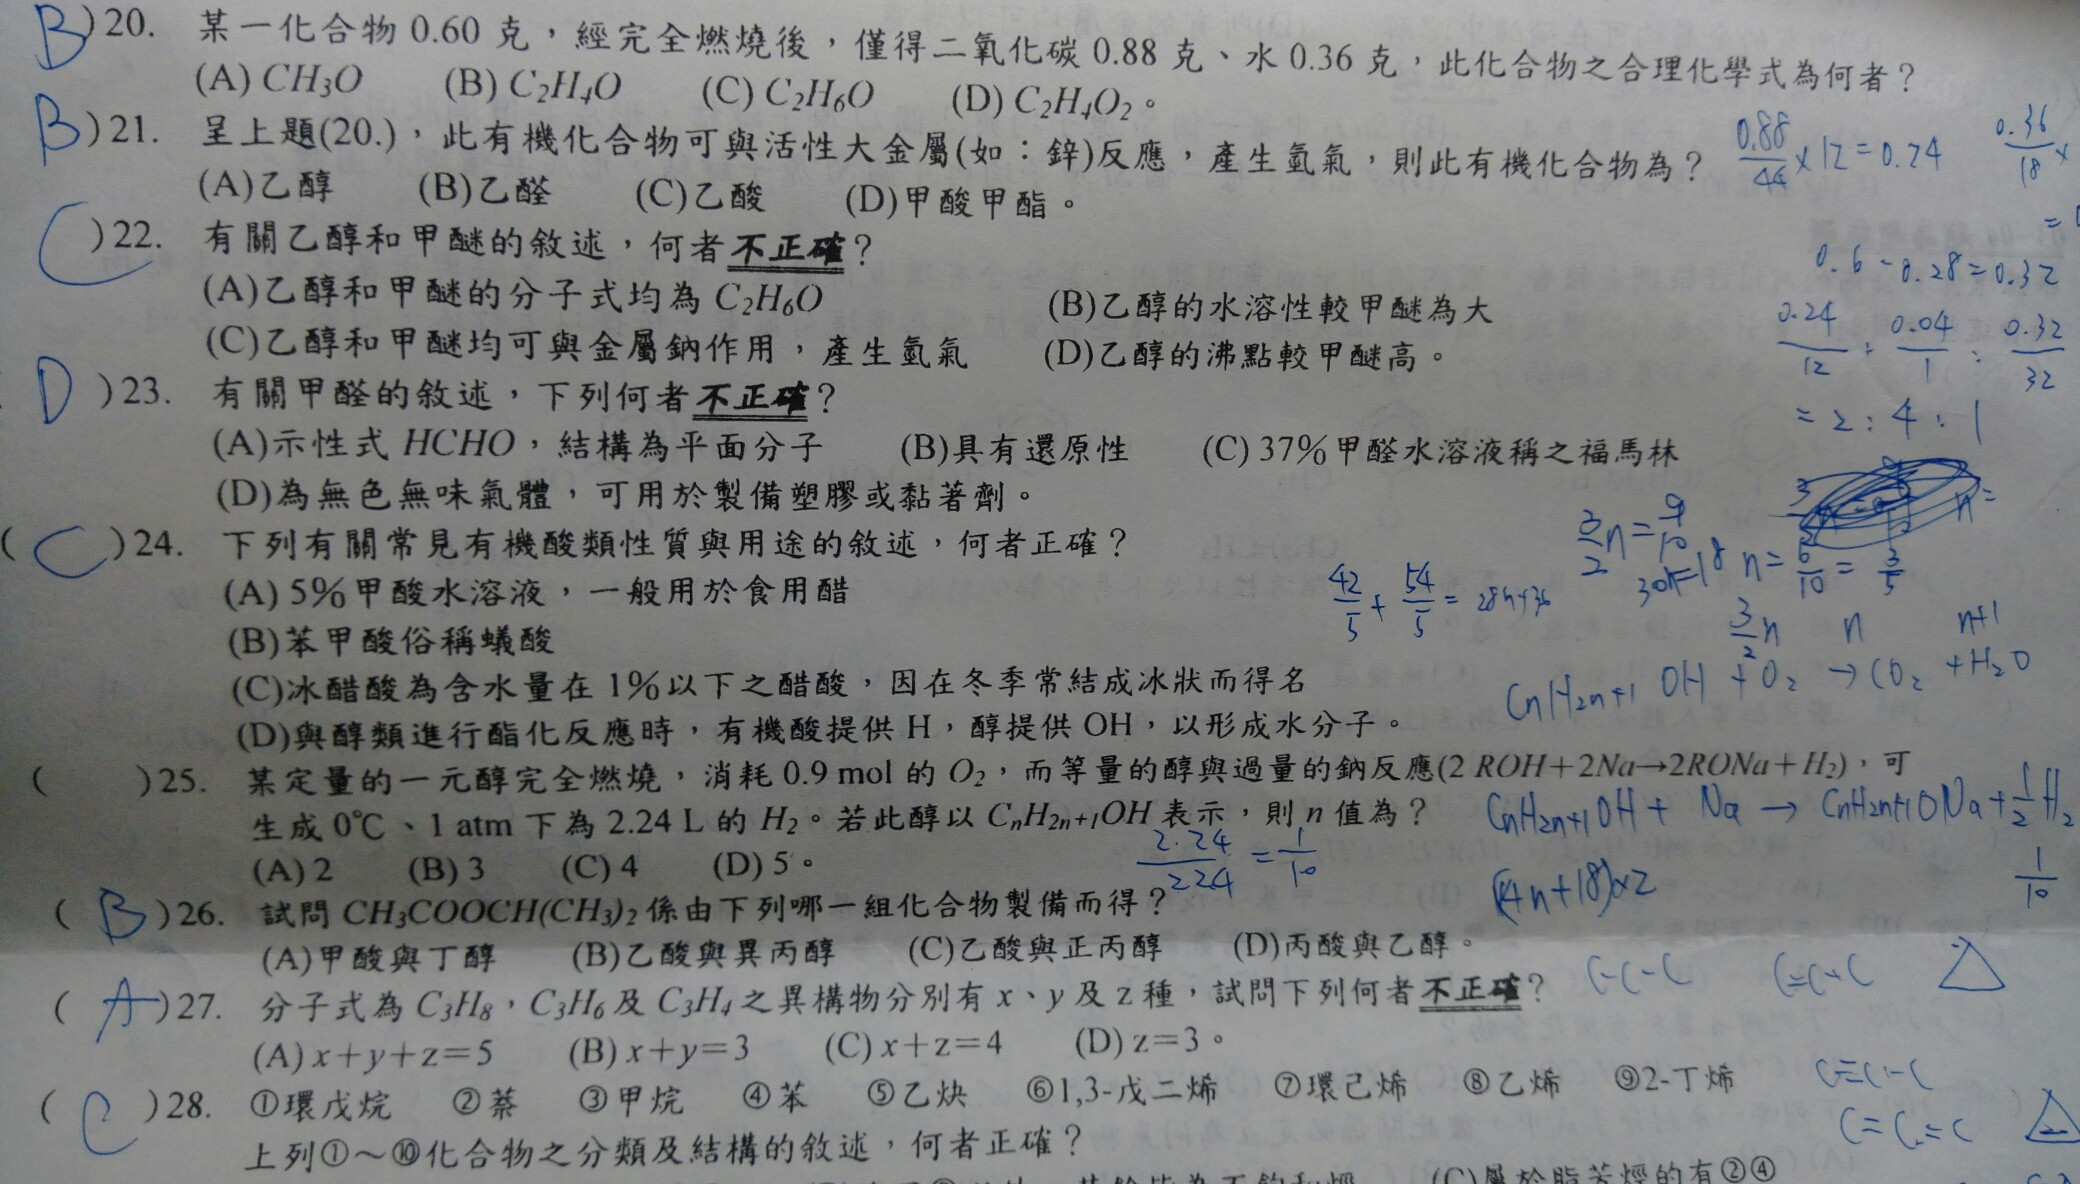 B)20. 某一化合物 0.60 克，經完全燃燒後，僅得二氧化碳 0.88 克、水 0.36 克，此化合物之合理化學式為何者？
(A) CH₃O (B) C₂H₄O (C) C₂H₆O (D) C₂H₄O₂。
B)21. 呈上題(20.)，此有機化合物可與活性大金屬(如：鋅)反應，產生氫氣，則此有機化合物為？
0.88/44 × 12 = 0.24
0.36/18 ×
(A)乙醇 (B)乙醛 (C)乙酸 (D)甲酸甲酯。
C)22. 有關乙醇和甲醚的敘述，何者不正確？
0.6 - 0.28 = 0.32
(A)乙醇和甲醚的分子式均為 C₂H₆O (B)乙醇的水溶性較甲醚為大
0.24/12 : 0.04/1 : 0.32/32
(C)乙醇和甲醚均可與金屬鈉作用，產生氫氣 (D)乙醇的沸點較甲醚高。
D)23. 有關甲醛的敘述，下列何者不正確？
= 2 : 4 : 1
(A)示性式 HCHO，結構為平面分子 (B)具有還原性 (C) 37%甲醛水溶液稱之福馬林
(D)為無色無味氣體，可用於製備塑膠或黏著劑。
3/2 n = 9/10
30n=18 n = 6/10 = 3/5
(C)24. 下列有關常見有機酸類性質與用途的敘述，何者正確？
(A) 5%甲酸水溶液，一般用於食用醋
42/5 + 54/5 = 28n+36
(B)苯甲酸俗稱蟻酸
3/2 n n n+1
(C)冰醋酸為含水量在 1%以下之醋酸，因在冬季常結成冰狀而得名
CnH2n+1 OH + O₂ → CO₂ + H₂O
(D)與醇類進行酯化反應時，有機酸提供 H，醇提供 OH，以形成水分子。
( )25. 某定量的一元醇完全燃燒，消耗 0.9 mol 的 O₂，而等量的醇與過量的鈉反應(2 ROH＋2Na→2RONa＋H₂)，可
生成 0℃、1 atm 下為 2.24 L 的 H₂。若此醇以 CₙH₂ₙ₊₁OH 表示，則 n 值為？
CnH2n+1OH + Na → CnH2n+1ONa + 1/2 H₂
(A) 2 (B) 3 (C) 4 (D) 5。
2.24/22.4 = 1/10
(14n+18)×2
1/10
(B)26. 試問 CH₃COOCH(CH₃)₂ 係由下列哪一組化合物製備而得？
(A)甲酸與丁醇 (B)乙酸與異丙醇 (C)乙酸與正丙醇 (D)丙酸與乙醇。
C-C-C C=C-C
(A)27. 分子式為 C₃H₈，C₃H₆ 及 C₃H₄ 之異構物分別有 x、y 及 z 種，試問下列何者不正確？
(A) x＋y＋z＝5 (B) x＋y＝3 (C) x＋z＝4 (D) z＝3。
C≡C-C
C=C=C
(C)28. ①環戊烷 ②萘 ③甲烷 ④苯 ⑤乙炔 ⑥1,3-戊二烯 ⑦環己烯 ⑧乙烯 ⑨2-丁烯
上列①～⑩化合物之分類及結構的敘述，何者正確？
(C)屬於脂芳烴的有②④